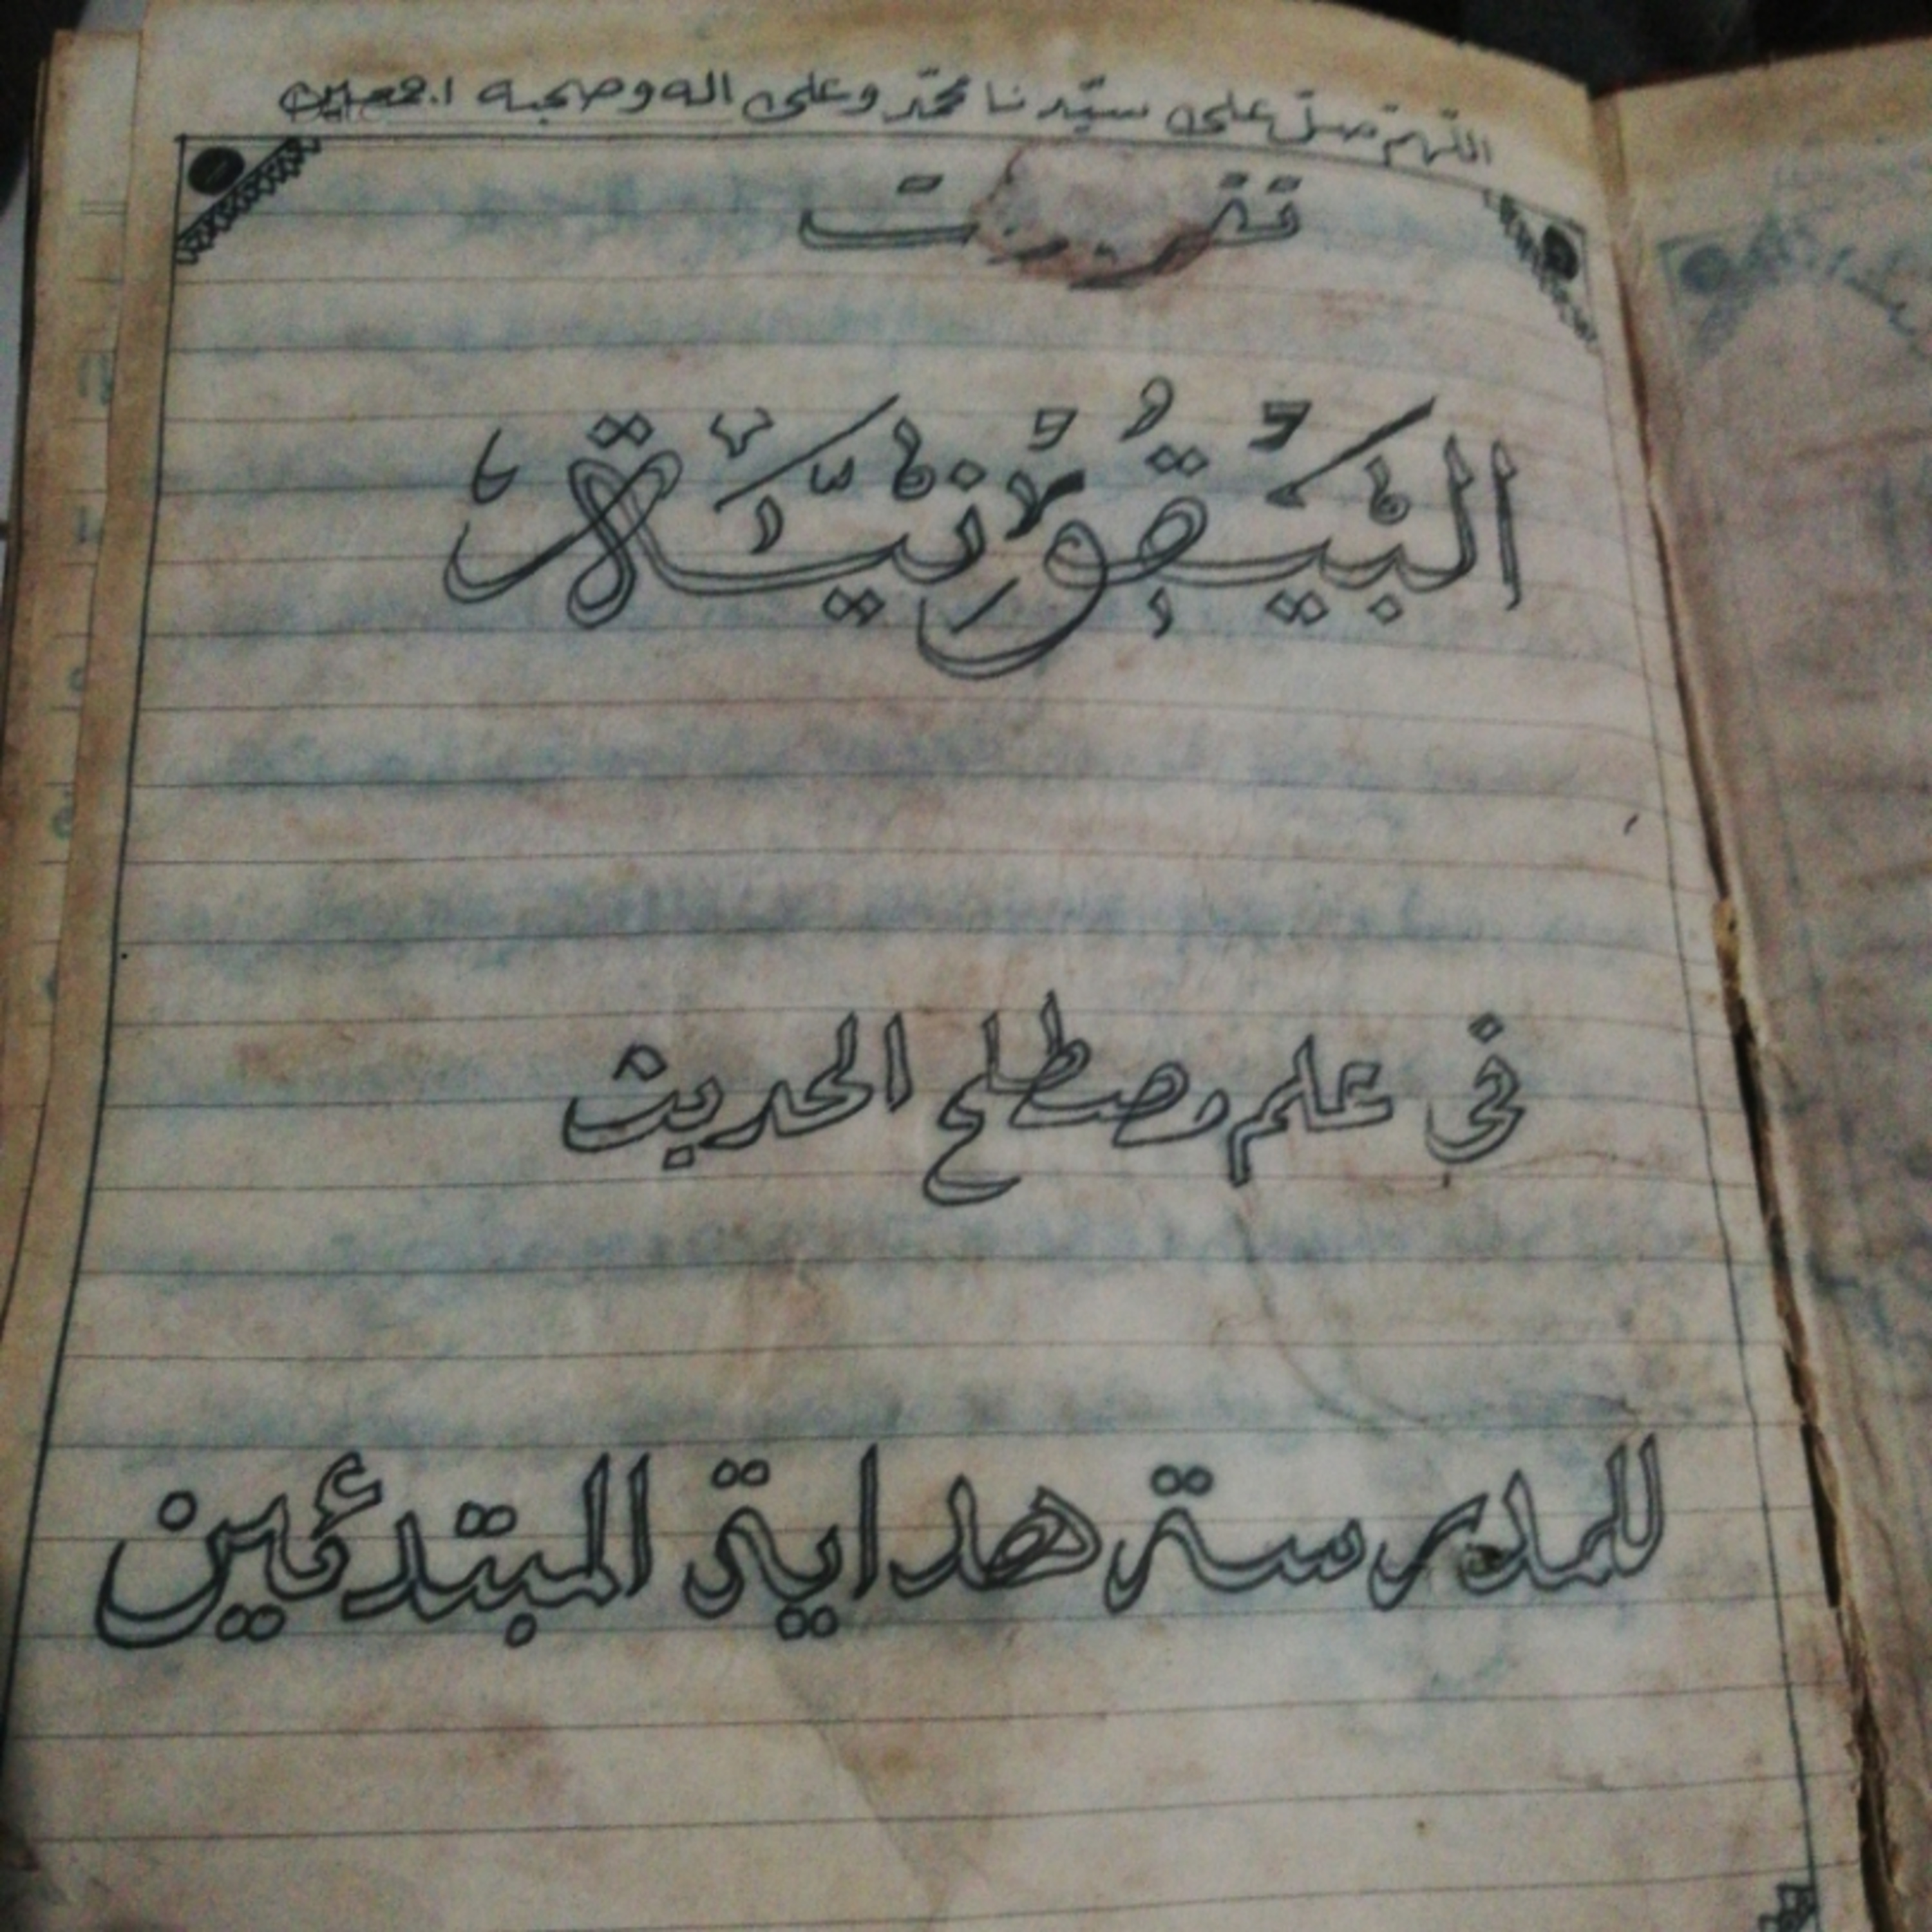 اللّهمّ صلّ على سيّدنا محمّد وعلى اله وصحبه اجمعين
البَيْقُوْنِيَّة
فى علم مصطلح الحديث
للمدرسة هداية المبتدئين